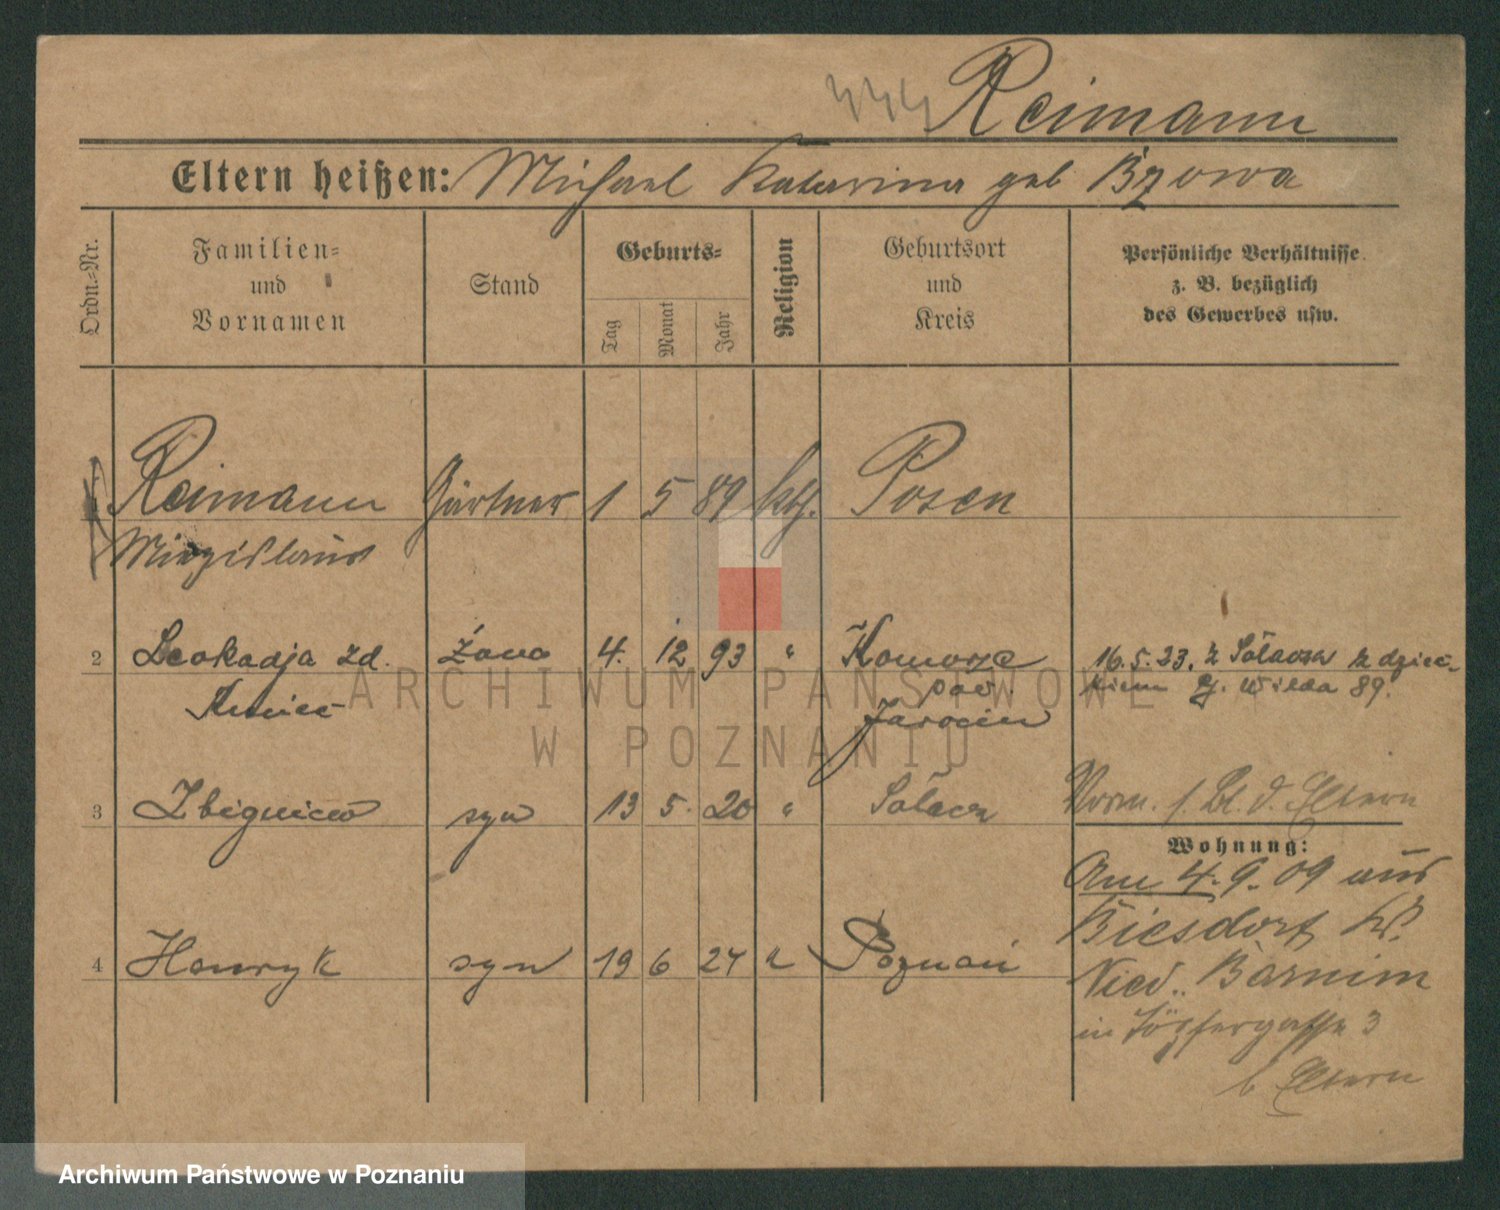 Reimann
Eltern heißen: Michael Katarina geb Bzowa
Ordn.-Nr.
Familien-
und
Vornamen
Stand
Geburts-
Tag
Monat
Jahr
Religion
Geburtsort
und
Kreis
Persönliche Verhältnisse
z. B. bezüglich
des Gewerbes usw.
Reimann Gärtner 1 5 89 kth. Posen
Miezislaus
2 Leokadja zd. żona 4. 12 93 " Komorze 16.5.23. z Sołacza z dziec-
kiem Wilda 89.
pow.
Jarocin
3 Zbigniew syn 13 5. 20 " Sołacz Vorm. s. Bl. d. Eltern
Wohnung:
Am 4.9.09 aus
Biesdorf Kr.
4 Henryk syn 19 6 24 " Poznań
Nied. Barnim
in Töpfergasse 3
b Eltern
ARCHIWUM PAŃSTWOWE
W POZNANIU
Archiwum Państwowe w Poznaniu